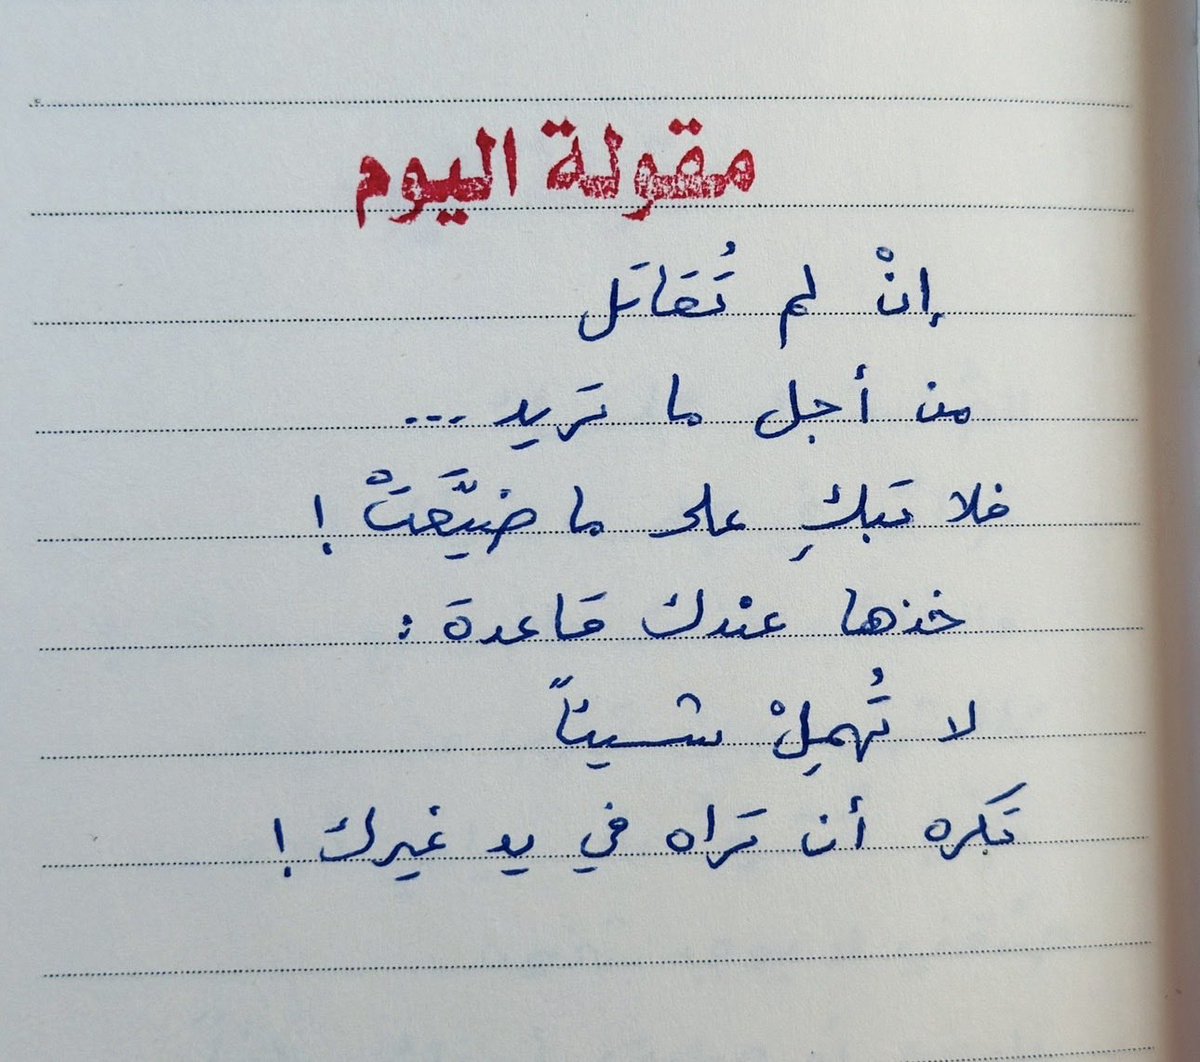 مقولة اليوم
إنْ لم تُقَاتَل
من أجل ما تَريد ...
فلا تَبكِ على ما ضيَّعَتْ !
خذها عنْدك قَاعدة :
لا تُهمِلْ شيئاً
تَكَره أن تَراه في يد غيرك !